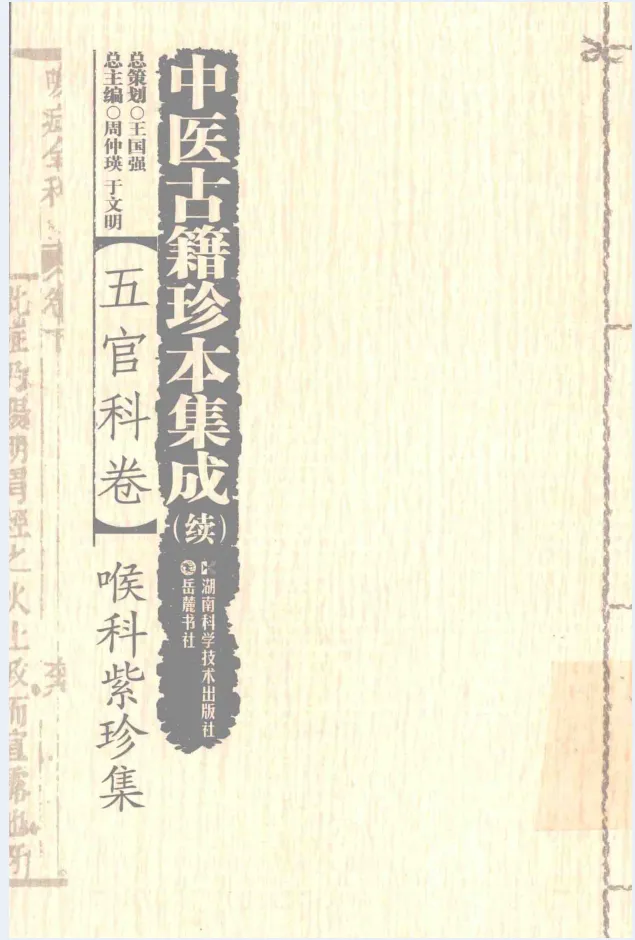 中医古籍珍本集成(续)
湖南科学技术出版社
岳麓书社
总策划○王国强
总主编○周仲瑛 于文明
【五官科卷】
喉科紫珍集
此症乃陽明胃經之火上